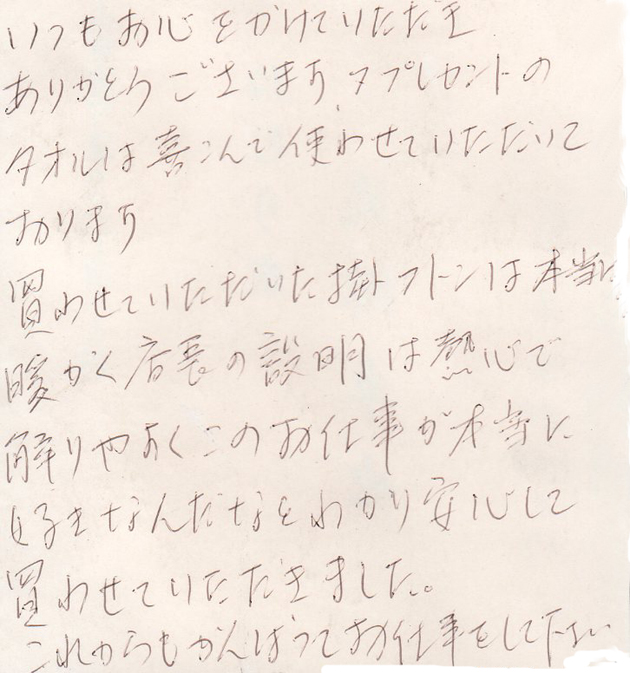 いつもお心をかけていただき
ありがとうございます、プレゼントの
タオルは喜こんで使わせていただいて
おります
買わせていただいた掛フトンは本当に
暖かく店長の説明は熱心で
解りやすくこのお仕事が本当に
好きなんだなとわかり安心して
買わせていただきました。
これからもがんばってお仕事をして下さい